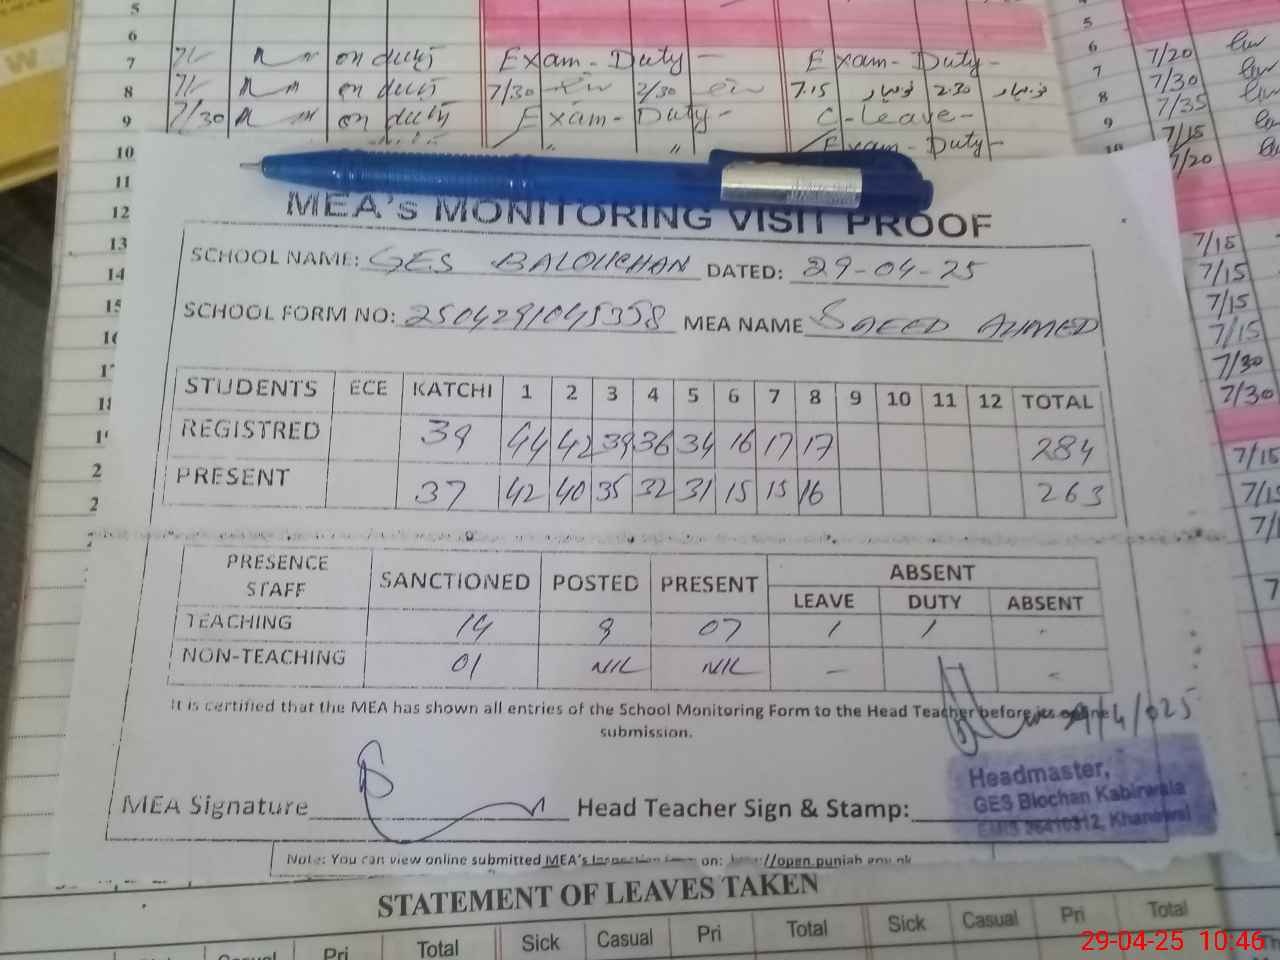 W
5
6
7 7/ on duty Exam - Duty - Exam - Duty -
8 7/ on duty 7/30 2/30 7.15 2.30
9 7/30 on duty Exam - Duty - C - Leave -
10 " " Exam - Duty -
11
12
13
14
5
6 7/20
7 7/30
8 7/35
9 7/15
10 7/20
7/15
7/15
7/15
7/15
7/30
7/30
7/15
MEA's MONITORING VISIT PROOF
SCHOOL NAME: GES BALOUCHAN DATED: 29-04-25
SCHOOL FORM NO: 2504291045358 MEA NAME SAEED AHMED
STUDENTS ECE KATCHI 1 2 3 4 5 6 7 8 9 10 11 12 TOTAL
REGISTRED 39 44 42 39 36 34 16 17 17 284
PRESENT 37 42 40 35 32 31 15 15 16 263
PRESENCE STAFF SANCTIONED POSTED PRESENT ABSENT
LEAVE DUTY ABSENT
TEACHING 14 9 07 1 1 -
NON-TEACHING 01 NIL NIL - -
It is certified that the MEA has shown all entries of the School Monitoring Form to the Head Teacher before its online
submission.
MEA Signature Head Teacher Sign & Stamp:
Headmaster,
GES Blochan Kabirwala
EMIS 36410312, Khanewal
Note: You can view online submitted MEA's Inspection form on: http://open.punjab.gov.pk
STATEMENT OF LEAVES TAKEN
Casual Pri Total Sick Casual Pri Total Sick Casual Pri Total
29-04-25 10:46